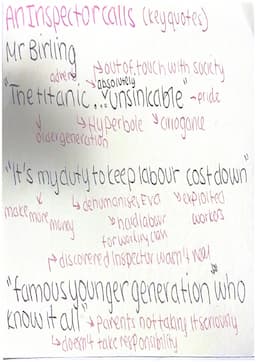 An Inspector calls (key quotes)
Mr Birling
adverb
out of touch with society
absolutely
"The titanic... unsinkable"
pride
Hyperbole
arrogance
older generation
"It's my duty to keep labour cost down"
make more money
dehumanises Eva
exploited workers
hard labour for working class
discovered inspector wasn't real
"famous younger generation who
know it all"
parents not taking it seriously
doesn't take responsibility